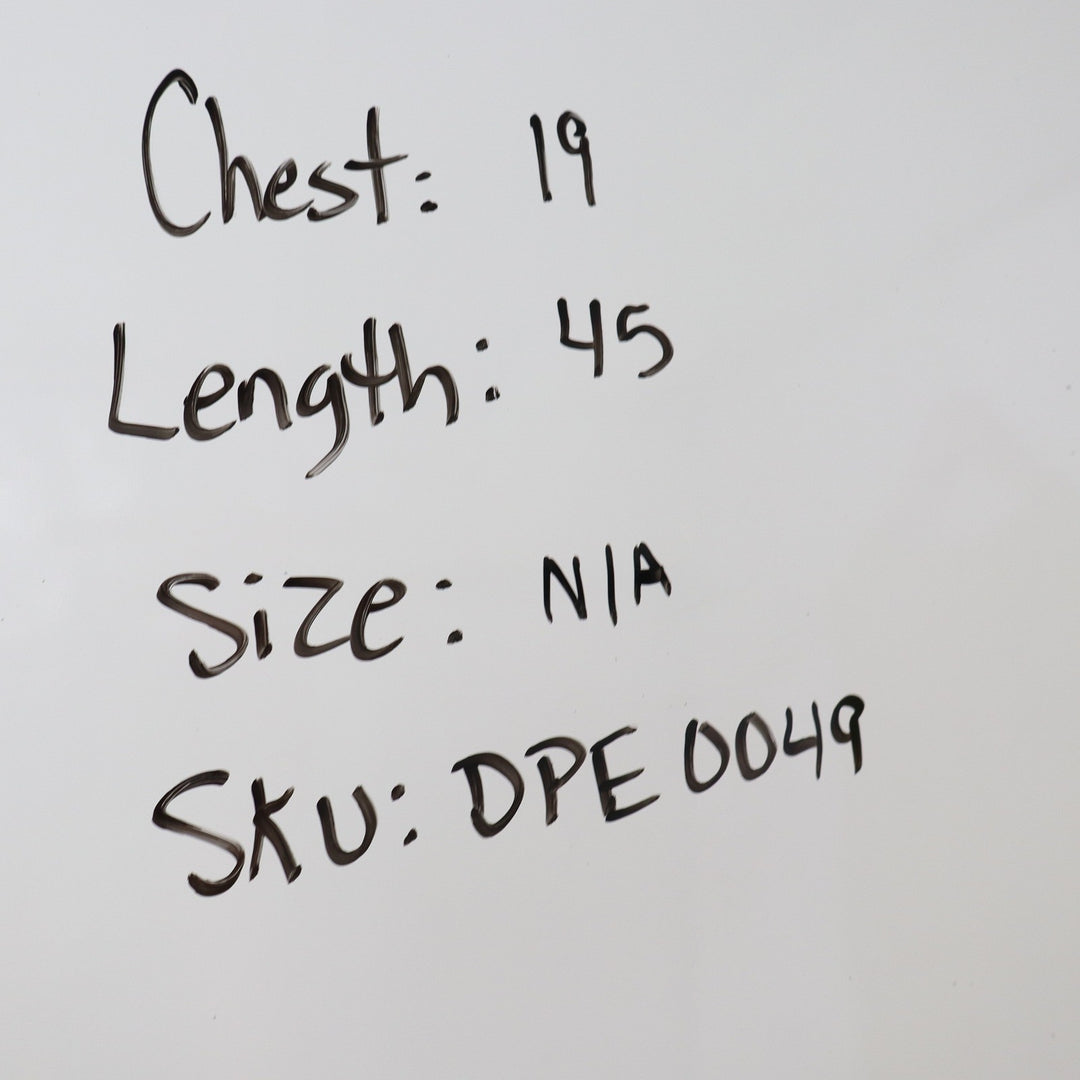 Chest: 19
Length: 45
Size: N/A
SKU: DPE 0049